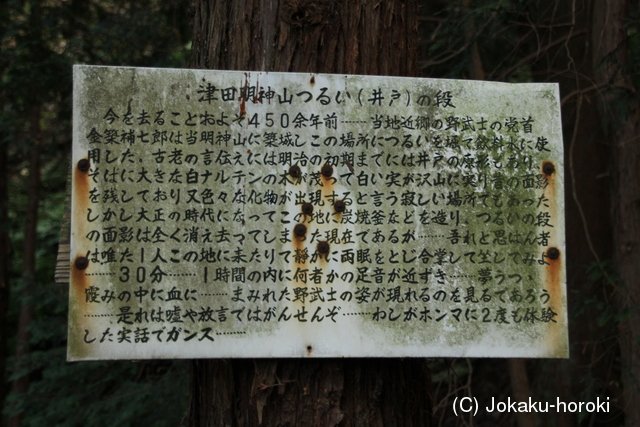 津田明神山つるい(井戸)の段
今を去ることおよそ450余年前……当地近郷の野武士の党首
金築補七郎は当明神山に築城しこの場所につるいを堀て飲料水に使
用した、古老の言伝えには明治の初期までには井戸の原形もあり
そばに大きな白ナルテンの木が茂って白い実が沢山に実り昔の面影
を残しており又色々な化物が出現すると言う寂しい場所でもあった
しかし大正の時代になってこの地に炭焼釜などを造り、つるいの段
の面影は全く消え去ってしまった現在であるが……吾れと思はん者
は唯た1人この地に来たりて静かに両眼をとじ合掌して坐してみよ
……30分……1時間の内に何者かの足音が近ずき……夢うつゝ
霞みの中に血に……まみれた野武士の姿が現れるのを見るであろう
……是れは嘘や放言ではがんせんぞ……わしがホンマに2度も体験
した実話でガンス……
(C) Jokaku-horoki